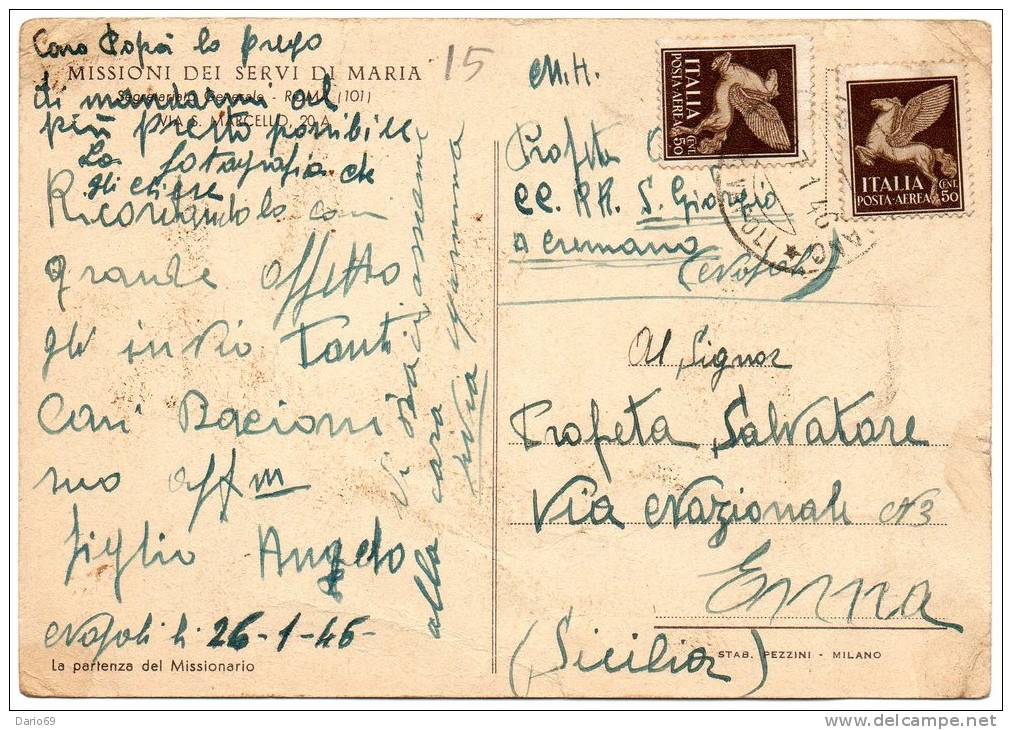 Caro Papà la prego
MISSIONI DEI SERVI DI MARIA
Segretariato Generale - ROMA (101)
di mandarmi al
VIA S. MARCELLO, 20 A
più presto possibile
La fotografia che
gli chiese
Ricordandola con
grande affetto
gli invio Tanti
Cari Bacioni
suo affm
figlio Angelo
Napoli li 26-1-46-
La partenza del Missionario
alla cara mamma
15
M.H.
Profeta
CC. RR. S. Giorgio
a Cremano
(Napoli)
ITALIA
POSTA-AEREA
CENT. 50
ITALIA
POSTA-AEREA
CENT. 50
1 46
Al Signor
Profeta Salvatore
Via Nazionale N3
Enna
(Sicilia)
STAB. PEZZINI - MILANO
Dario69
delcampe.net